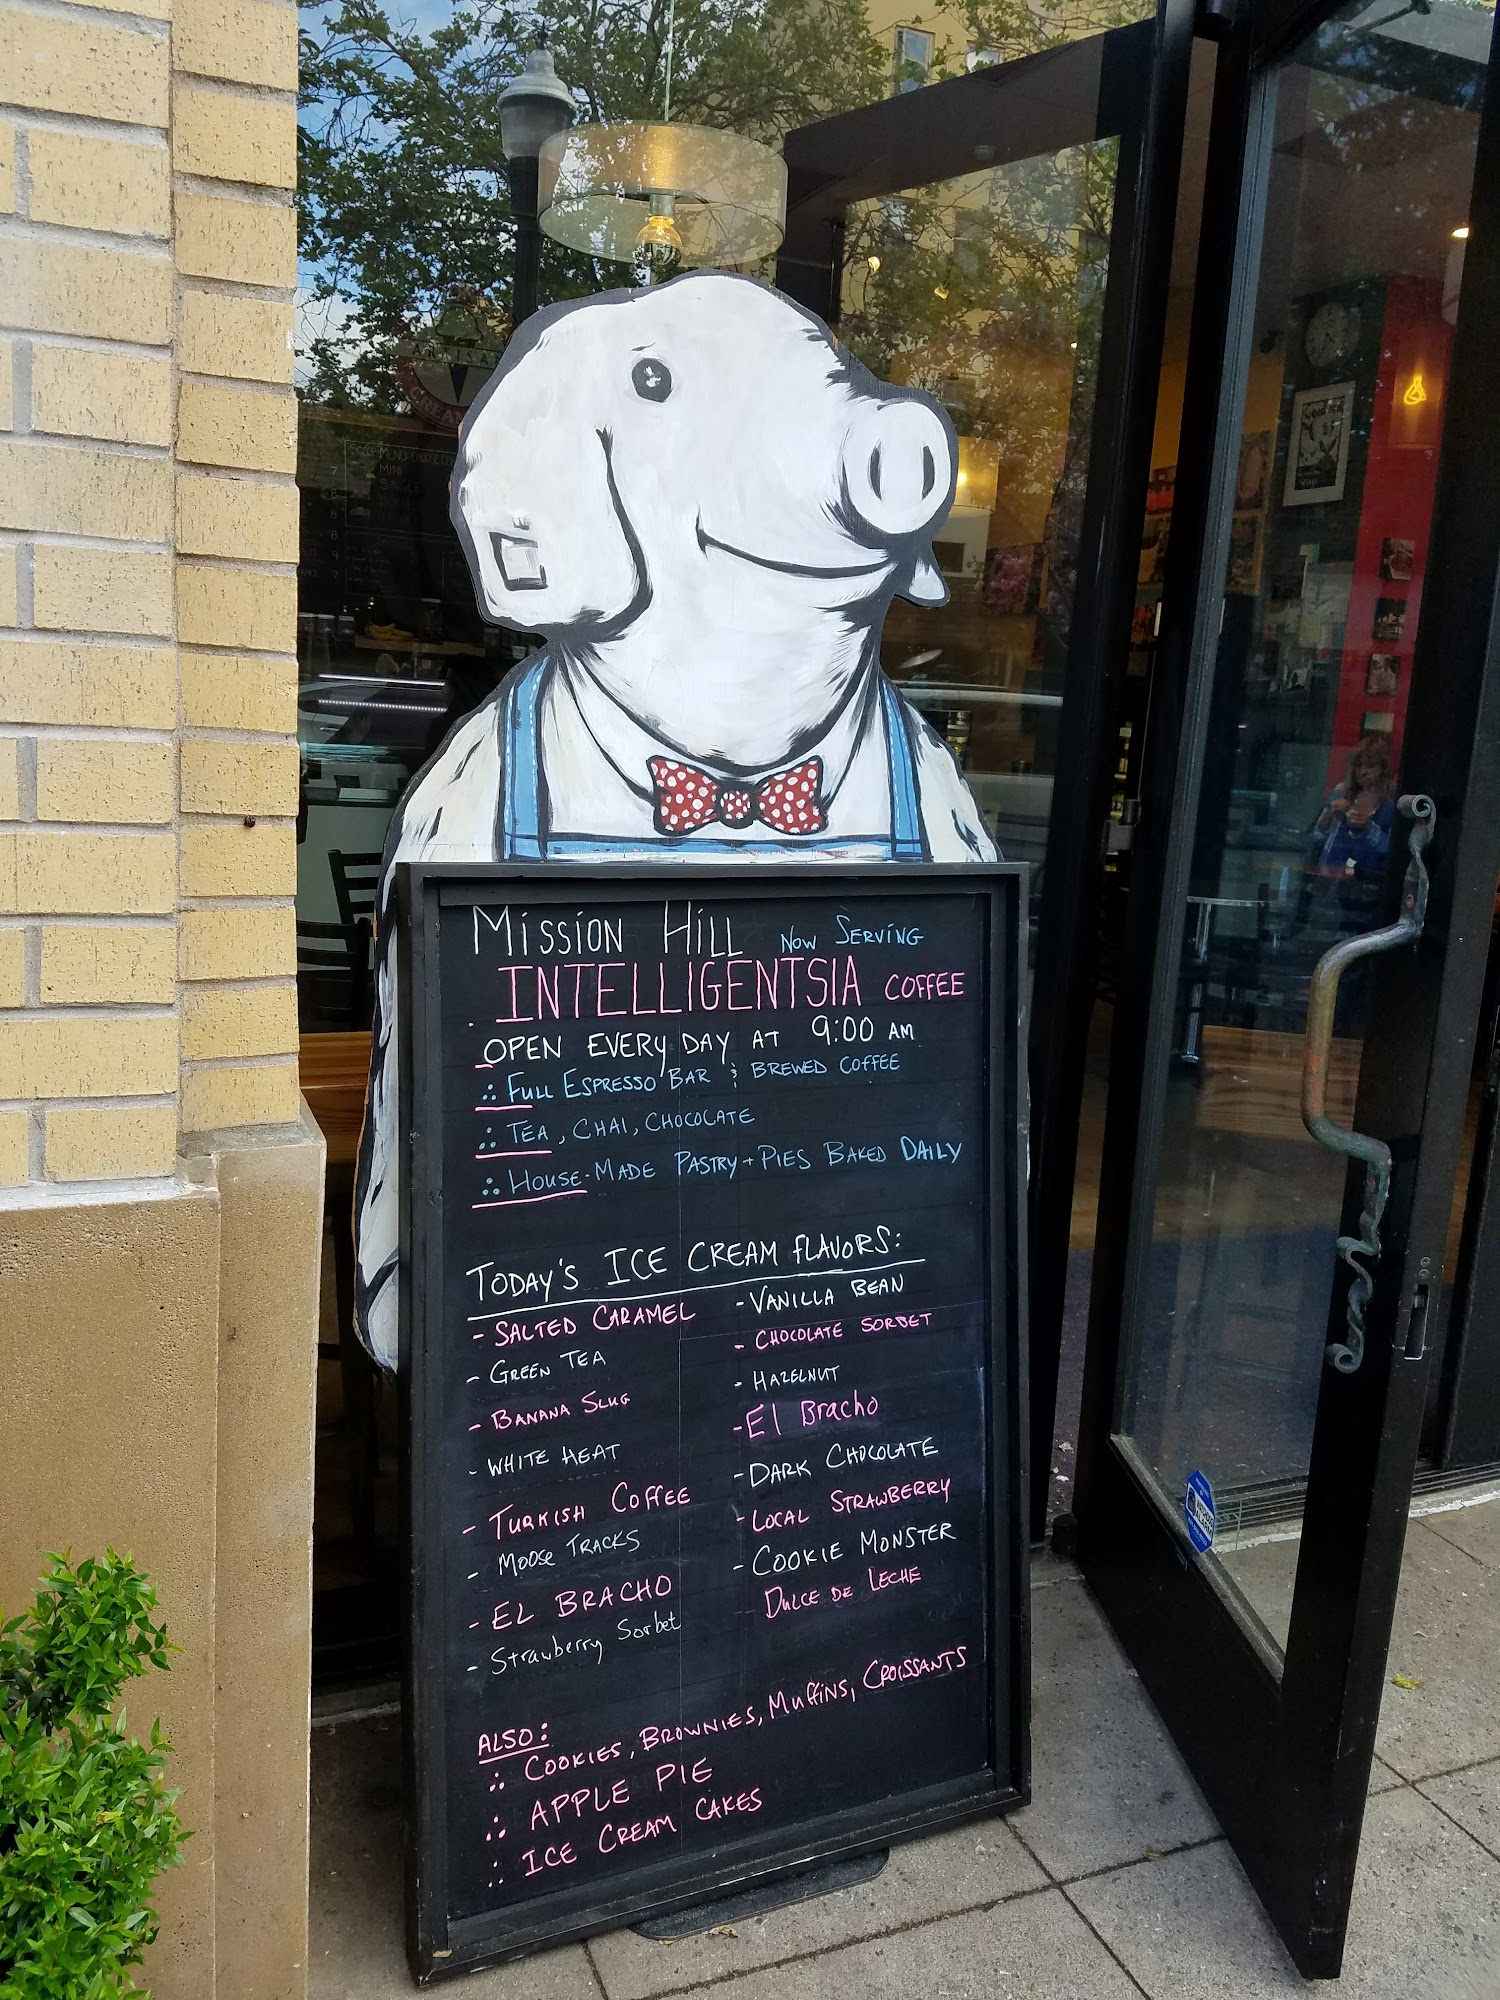 ARTISAN
CREAM
SCOOP MENU
MINI
SINGLE
MISSION HILL NOW SERVING
INTELLIGENTSIA COFFEE
OPEN EVERY DAY AT 9:00 AM
∴ FULL ESPRESSO BAR & BREWED COFFEE
∴ TEA, CHAI, CHOCOLATE
∴ HOUSE-MADE PASTRY + PIES BAKED DAILY
TODAY'S ICE CREAM FLAVORS:
- SALTED CARAMEL
- GREEN TEA
- BANANA SLUG
- WHITE HEAT
- TURKISH COFFEE
- MOOSE TRACKS
- EL BRACHO
- Strawberry Sorbet
- VANILLA BEAN
- CHOCOLATE SORBET
- HAZELNUT
- El Bracho
- DARK CHOCOLATE
- LOCAL STRAWBERRY
- COOKIE MONSTER
DULCE DE LECHE
ALSO:
∴ COOKIES, BROWNIES, MUFFINS, CROISSANTS
∴ APPLE PIE
∴ ICE CREAM CAKES